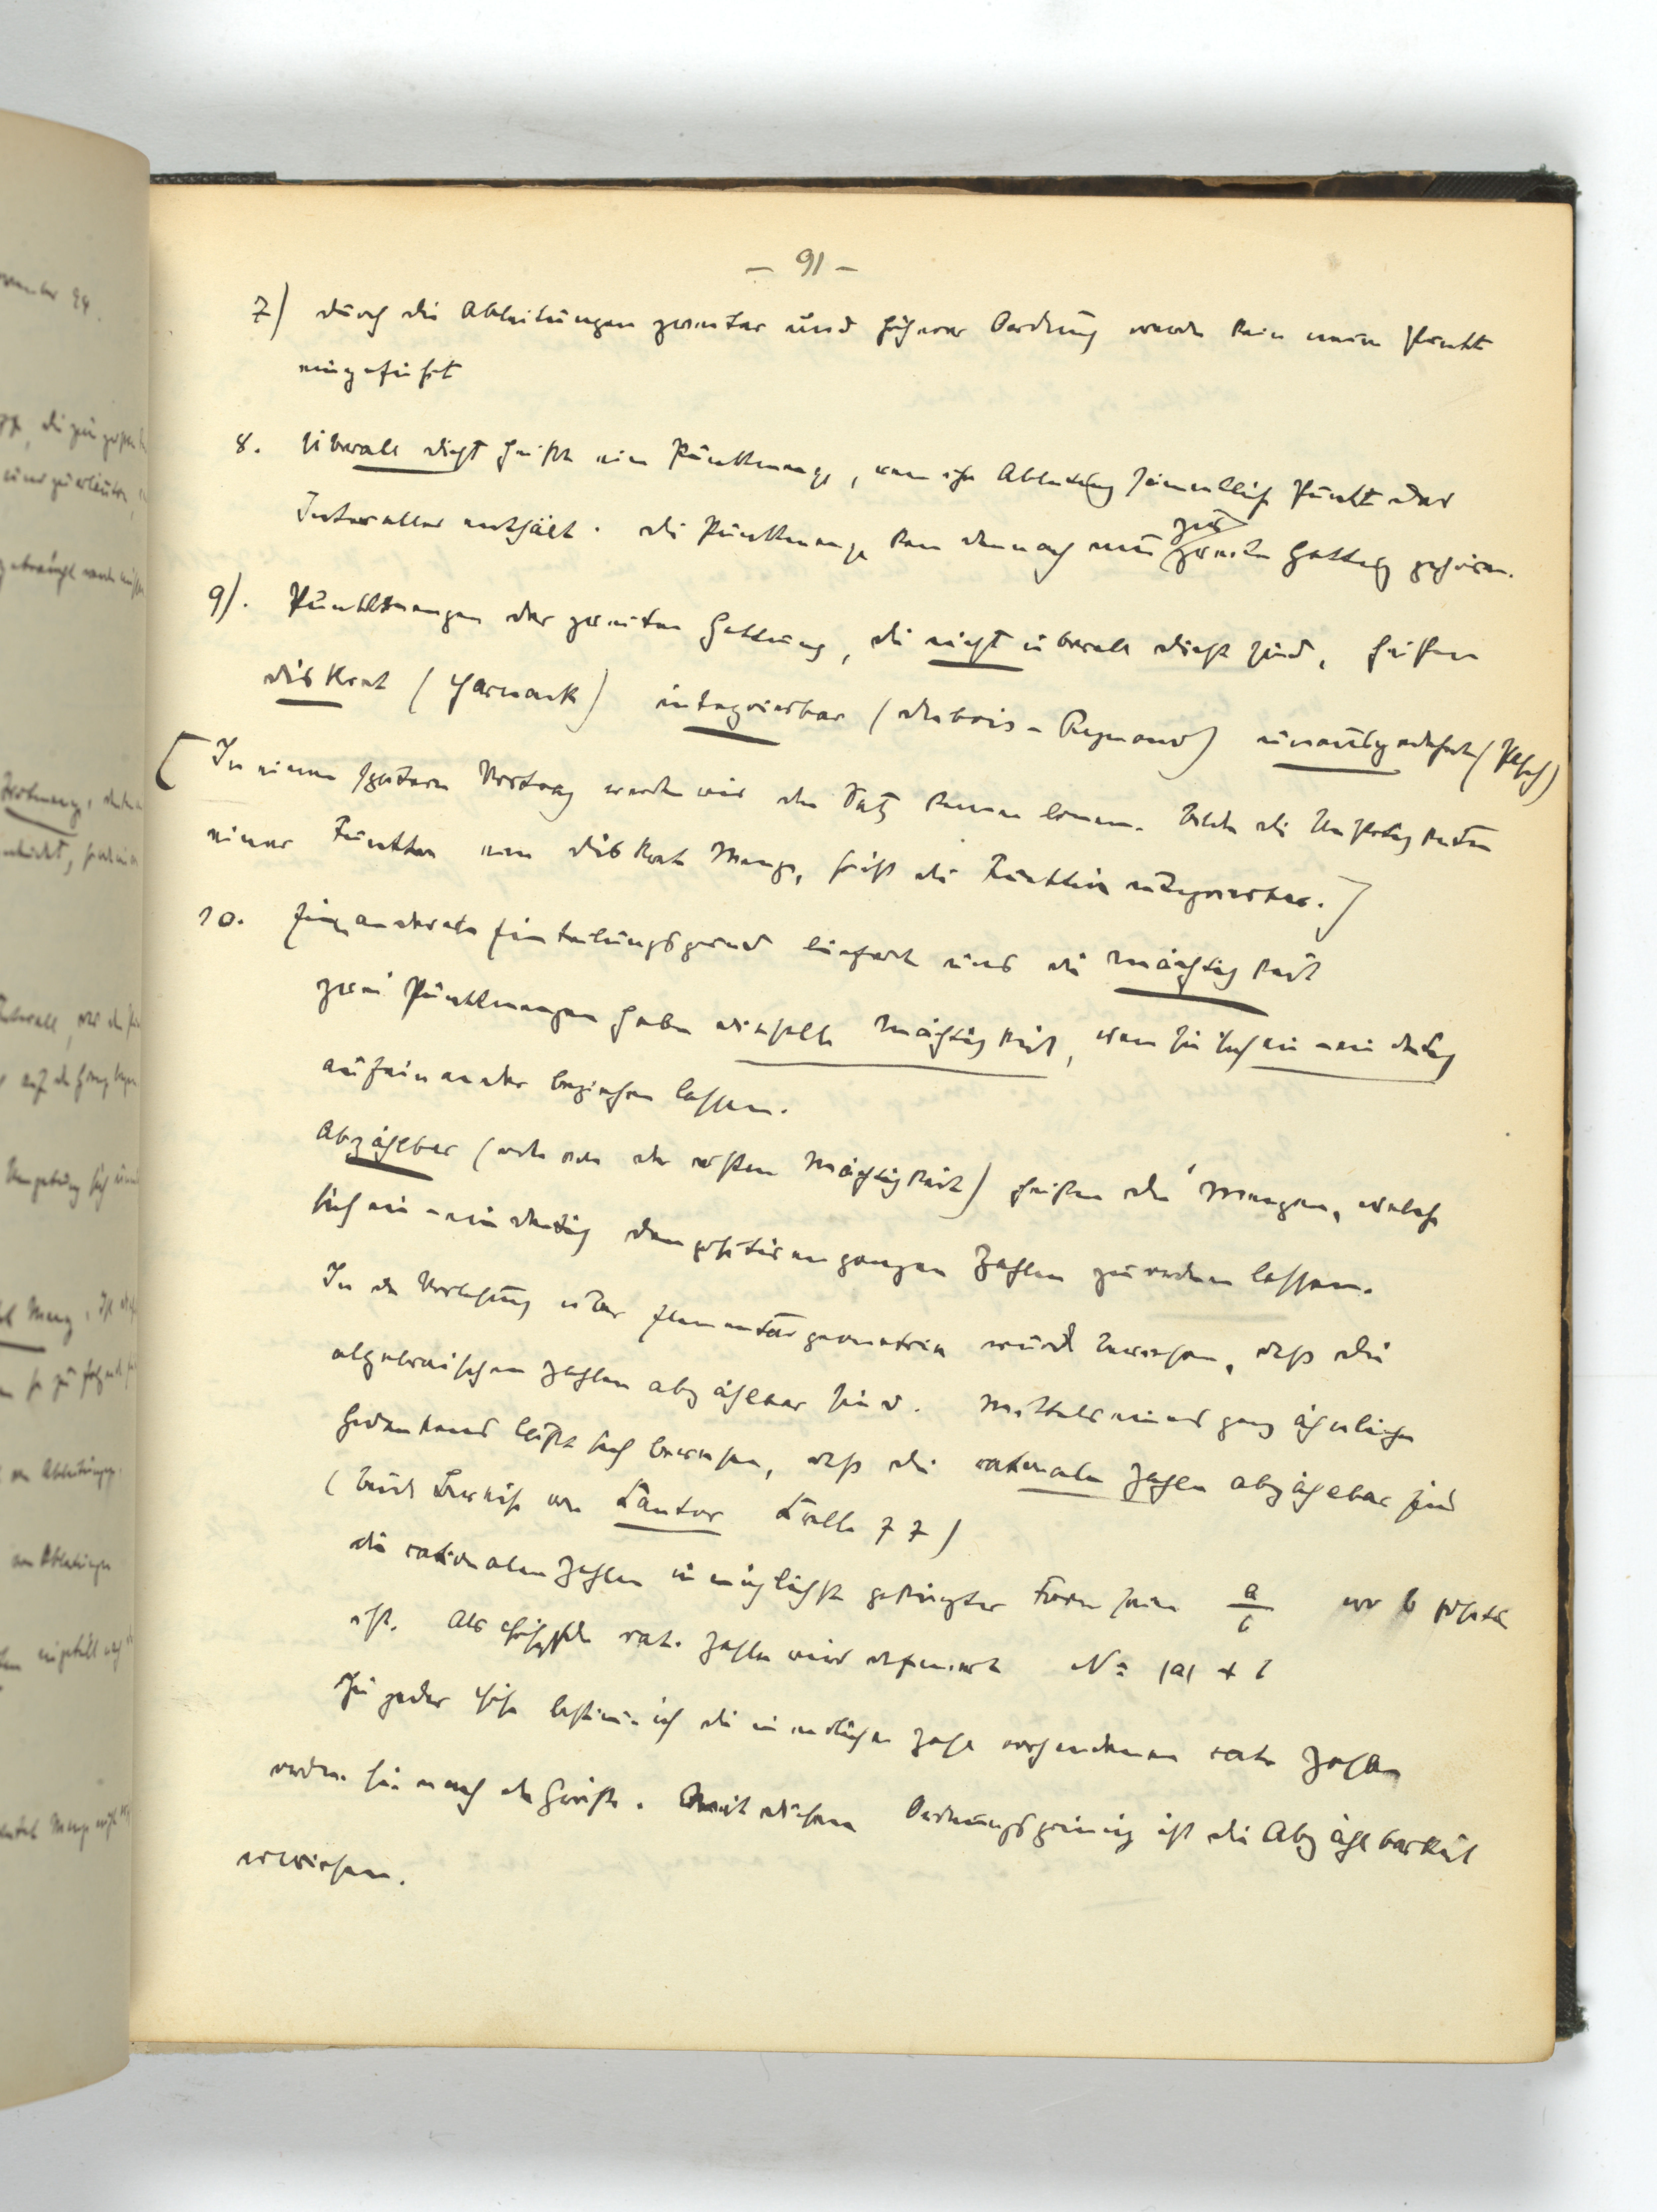 – 91 –
7) durch die Ableitungen zweiter und höherer Ordnung werde kein neuer Punkt
eingeführt
8. überall dicht heißt eine Punktmenge, wenn ihre Ableitung sämmtlich Punkte des
Intervalles enthält. die Punktmenge kann demnach nur zur zweiten Gattung gehören.
9). Punktmengen der zweiten Gattung, die nicht überall dicht sind, heißen
diskret (Harnack) integrierbar (dubois-Reymond) unausgedehnt (Pasch)
[In einem spätern Vortrag werden wir den Satz kennen lernen. Bilden die Unstetigkeiten
einer Funktion eine diskrete Menge, heißt die Funktion integrierbar.]
10. Einen anderen Einteilungsgrund liefert uns die Mächtigkeit
zwei Punktmengen haben dieselbe Mächtigkeit, wenn sie sich ein-eindeutig
aufeinander beziehen lassen.
Abzählbar (oder von der ersten Mächtigkeit) heißen die Mengen, welche
sich ein-eindeutig den positiven ganzen Zahlen zuordnen lassen.
In der Vorlesung über Elementargeometrie wurde bewiesen, daß die
algebraischen Zahlen abzählbar sind. Mittels eines ganz ähnlichen
Gedankens läßt sich beweisen, daß die rationalen Zahlen abzählbar sind
(beide Beweise von Cantor Crelle 77)
die rationalen Zahlen in möglichst gekürzter Form seien a/b wo b positiv
ist. Als Höhe der rat. Zahlen wird definiert N = |a| + b
Zu jeder Höhe bestimme ich die in endlicher Zahl vorhandenen rat. Zahlen
ordne sie nach der Größe. Mit diesem Ordnungsprinzip ist die Abzählbarkeit
erwiesen.